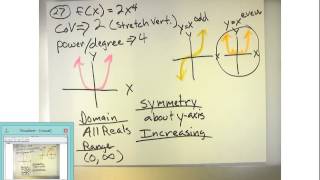 27) f(x) = 2x⁴
CoV ⇒ 2 (stretch vert.)
power/degree ⇒ 4
y=x odd
y=x evens
y
y
y
x
x
x
Domain
All Reals
Range
(0, ∞)
Symmetry
about y-axis
Increasing